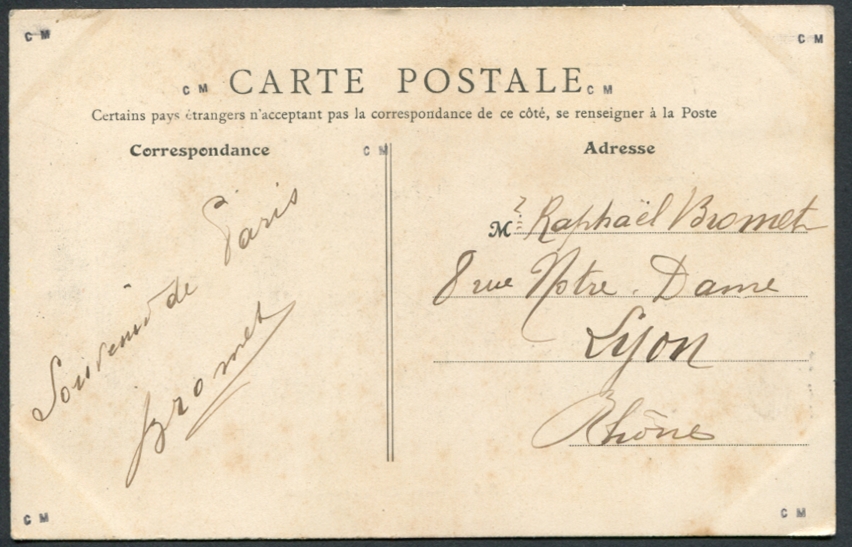 C M
C M
C M CARTE POSTALE C M
Certains pays étrangers n'acceptant pas la correspondance de ce côté, se renseigner à la Poste
Correspondance
C M
Souvenir de Paris
Bromet
Adresse
Mr Raphaël Bromet
8 rue Notre-Dame
Lyon
Rhône
C M
C M